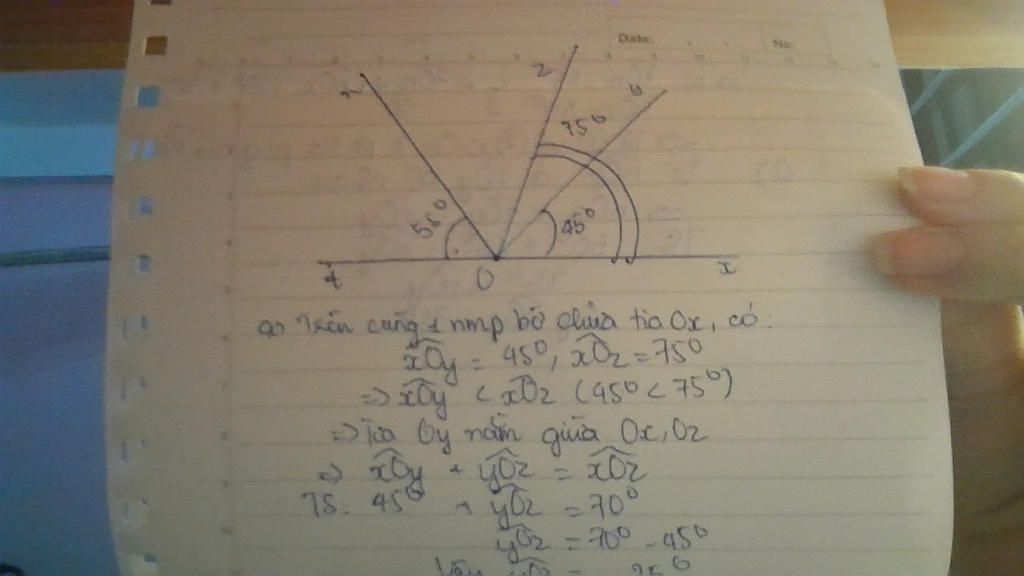 Date: No:
z
n y
75°
55° 45°
t O x
a) Trên cùng 1 nmp bờ chứa tia Ox, có:
xÔy = 45°, xÔz = 75°
=> xÔy < xÔz (45° < 75°)
=> Tia Oy nằm giữa Ox, Oz
=> xÔy + yÔz = xÔz
TS. 45° + yÔz = 70°
yÔz = 70° - 45°
Vậy = 25°